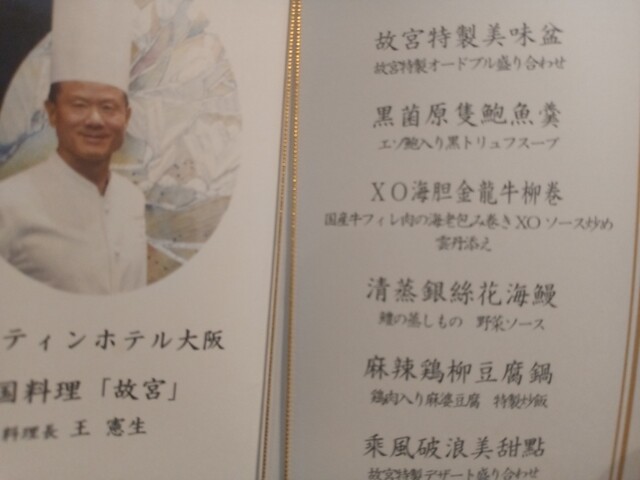 ティンホテル大阪
国料理「故宮」
料理長 王 憲生
故宮特製美味盆
故宮特製オードブル盛り合わせ
黒菌原隻鮑魚羹
エゾ鮑入り黒トリュフスープ
XO海胆金龍牛柳巻
国産牛フィレ肉の海老包み巻きXOソース炒め
雲丹添え
清蒸銀絲花海鰻
鱧の蒸しもの 野菜ソース
麻辣鶏柳豆腐鍋
鶏肉入り麻婆豆腐 特製炒飯
乘風破浪美甜點
故宮特製デザート盛り合わせ